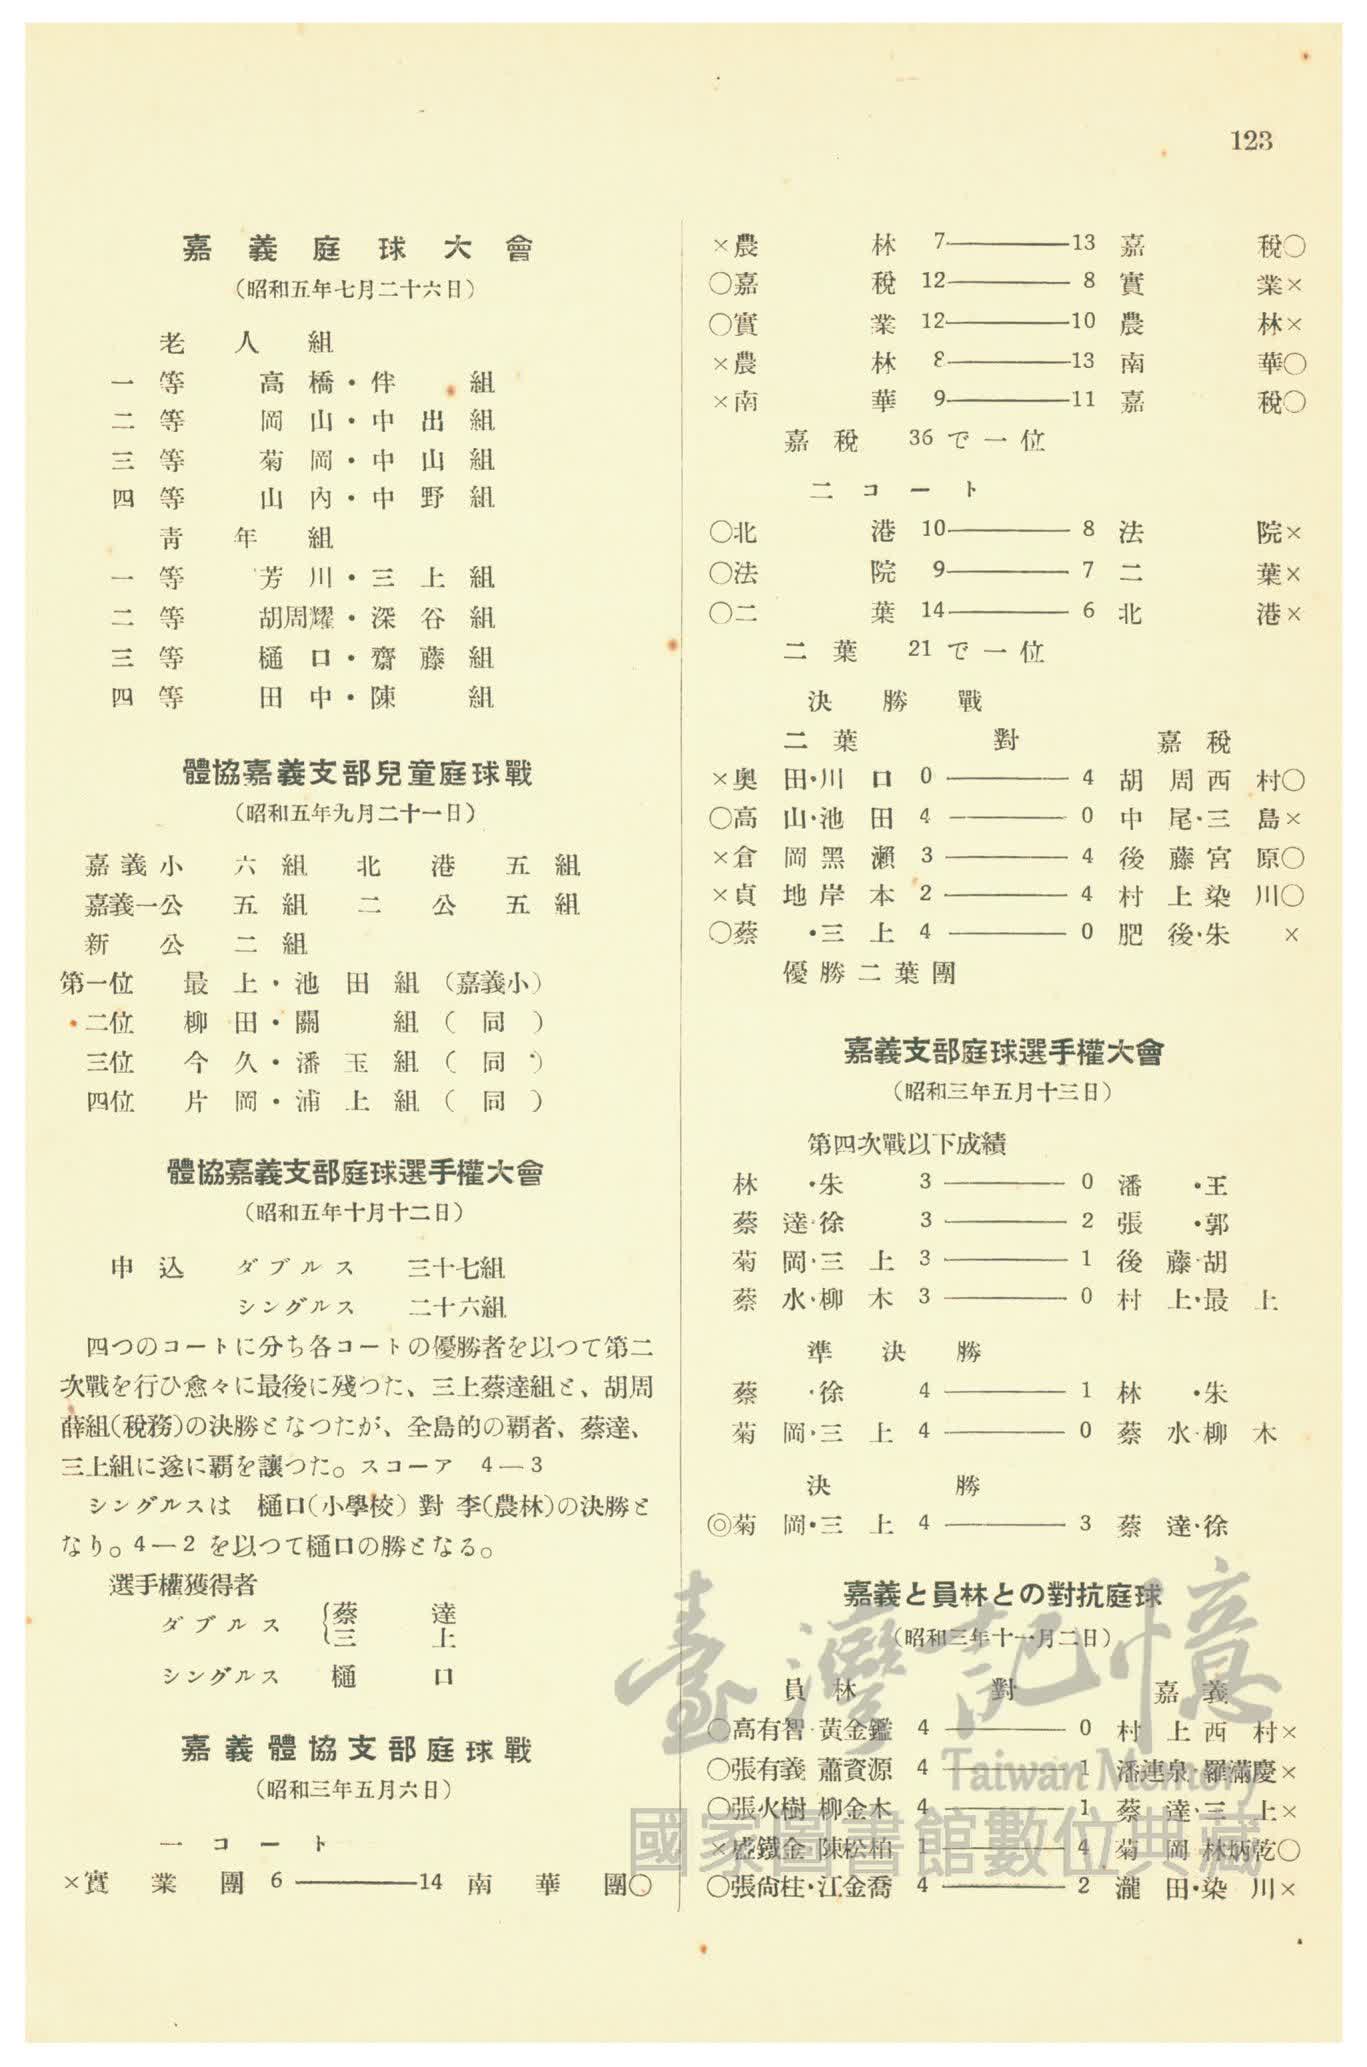 123
嘉義庭球大會
（昭和五年七月二十六日）
老人組
一等 高橋・伴 組
二等 岡山・中出組
三等 菊岡・中山組
四等 山內・中野組
靑年組
一等 芳川・三上組
二等 胡周耀・深谷組
三等 樋口・齋藤組
四等 田中・陳 組
體協嘉義支部兒童庭球戰
（昭和五年九月二十一日）
嘉義小 六組 北港 五組
嘉義一公 五組 二公 五組
新公 二組
第一位 最上・池田組（嘉義小）
二位 柳田・關 組（同）
三位 今久・潘玉組（同）
四位 片岡・浦上組（同）
體協嘉義支部庭球選手權大會
（昭和五年十月十二日）
申込 ダブルス 三十七組
シングルス 二十六組
四つのコートに分ち各コートの優勝者を以つて第二
次戰を行ひ愈々に最後に殘つた、三上蔡達組と、胡周
薛組(稅務)の決勝となつたが、全島的の覇者、蔡達、
三上組に遂に覇を讓つた。スコーア 4―3
シングルスは 樋口(小學校) 對 李(農林)の決勝と
なり。4―2 を以つて樋口の勝となる。
選手權獲得者
ダブルス {蔡達
三上
シングルス 樋口
嘉義體協支部庭球戰
（昭和三年五月六日）
一コート
×實業團 6――14 南華團○
×農林 7――13 嘉稅○
○嘉稅 12――8 實業×
○實業 12――10 農林×
×農林 8――13 南華○
×南華 9――11 嘉稅○
嘉稅 36で一位
二コート
○北港 10――8 法院×
○法院 9――7 二葉×
○二葉 14――6 北港×
二葉 21で一位
決勝戰
二葉 對 嘉稅
×奧田・川口 0――4 胡周西村○
○高山・池田 4――0 中尾・三島×
×倉岡黑瀨 3――4 後藤宮原○
×貞地岸本 2――4 村上染川○
○蔡・三上 4――0 肥後・朱×
優勝二葉團
嘉義支部庭球選手權大會
（昭和三年五月十三日）
第四次戰以下成績
林・朱 3――0 潘・王
蔡達・徐 3――2 張・郭
菊岡・三上 3――1 後藤・胡
蔡水・柳木 3――0 村上・最上
準決勝
蔡・徐 4――1 林・朱
菊岡・三上 4――0 蔡水・柳木
決勝
◎菊岡・三上 4――3 蔡達・徐
嘉義と員林との對抗庭球
（昭和三年十一月二日）
員林 對 嘉義
○高有智・黃金鑑 4――0 村上西村×
○張有義 蕭資源 4――1 潘連泉・羅滿慶×
○張火樹 柳金木 4――1 蔡達・三上×
×盛鐵金 陳松柏 1――4 菊岡 林炳乾○
○張尙柱・江金喬 4――2 瀧田・染川×
臺灣記憶
Taiwan Memory
國家圖書館數位典藏